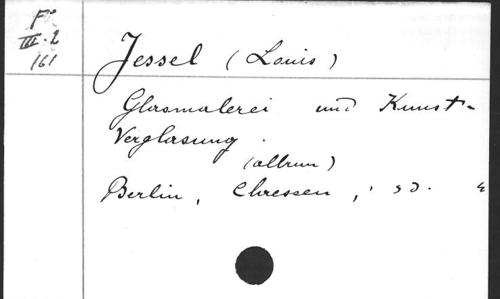 Fº
III.2
161
Jessel (Louis)
Glasmalerei und Kunst-
Verglasung.
(album)
Berlin, Claessen, sd.